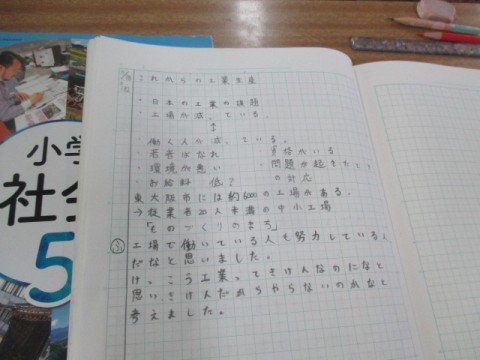 小学
社会
5
これからの工業生産
・日本の工業の課題
・工場が減っている。
働く人の減っている。
・若者ばなれ
資格がいる
・環境が悪い
・問題が起きたとき
の対応
・お給料 低?
東大阪市には約6000の工場がある。
→従業者20人未満の中小工場
「ものづくりのまち」
工場で働いている人も努力している人
だなと思いました。
けっこう工業ってきけんなのになと
思いきけんだからやらないのかなと
考えました。